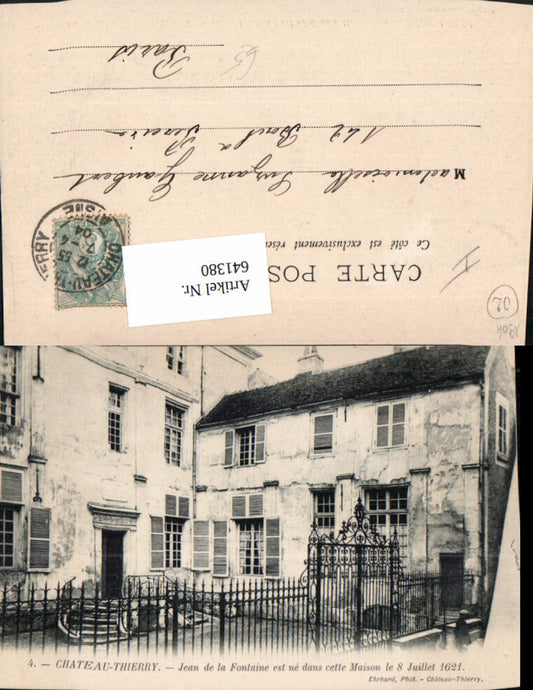 Paris
65
142 Boul
Mademoiselle Suzanne Gaubert
Ce côté est exclusivement rése
CARTE POS
CHATEAU-THIERRY
AISNE
7-4
04
Artikel Nr.
641380
02
1904
4. — CHATEAU-THIERRY. — Jean de la Fontaine est né dans cette Maison le 8 Juillet 1621.
Ehrhard, Phot. - Château-Thierry.